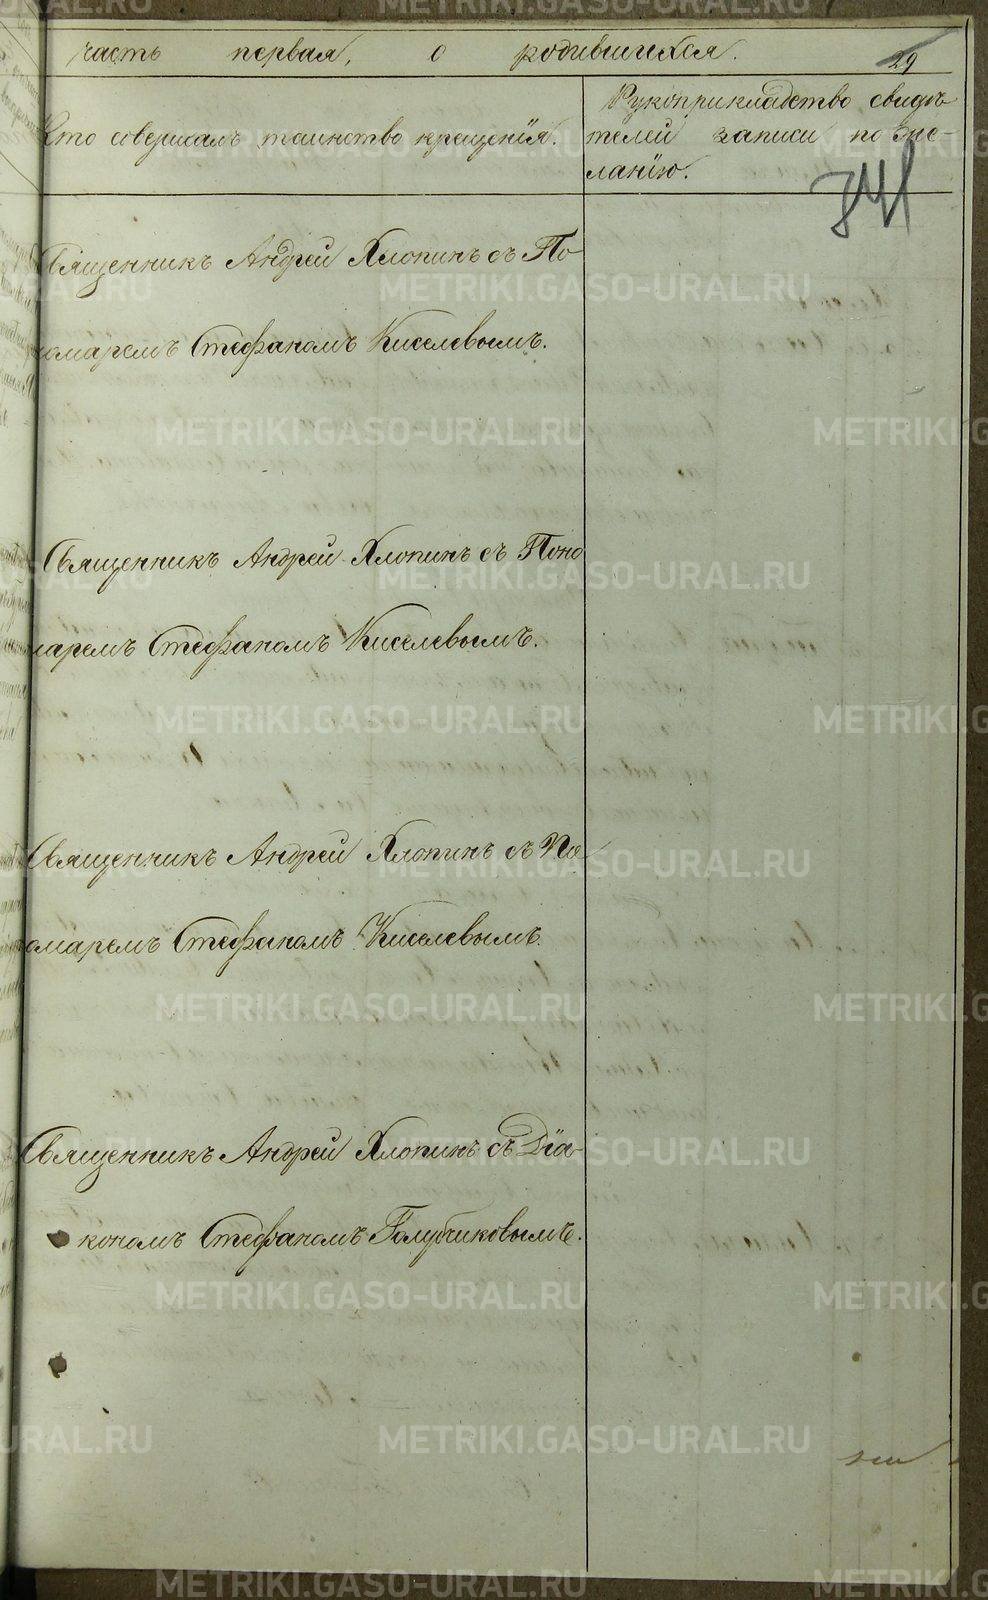 часть первая, о родившихся.
29
Кто совершалъ таинство крещенїя.
Рукоприкладство свидѣ
телей записи по же-
ланїю.
341
Священникъ Андрей Хлопинъ съ По-
номаремъ Стефаномъ Киселевымъ.
Священникъ Андрей Хлопинъ съ Поно
маремъ Стефаномъ Киселевымъ.
Священникъ Андрей Хлопинъ съ По
номаремъ Стефаномъ Киселевымъ.
Священникъ Андрей Хлопинъ съ Дїа-
кономъ Стефаномъ Голубчиковымъ.
METRIKI.GASO-URAL.RU